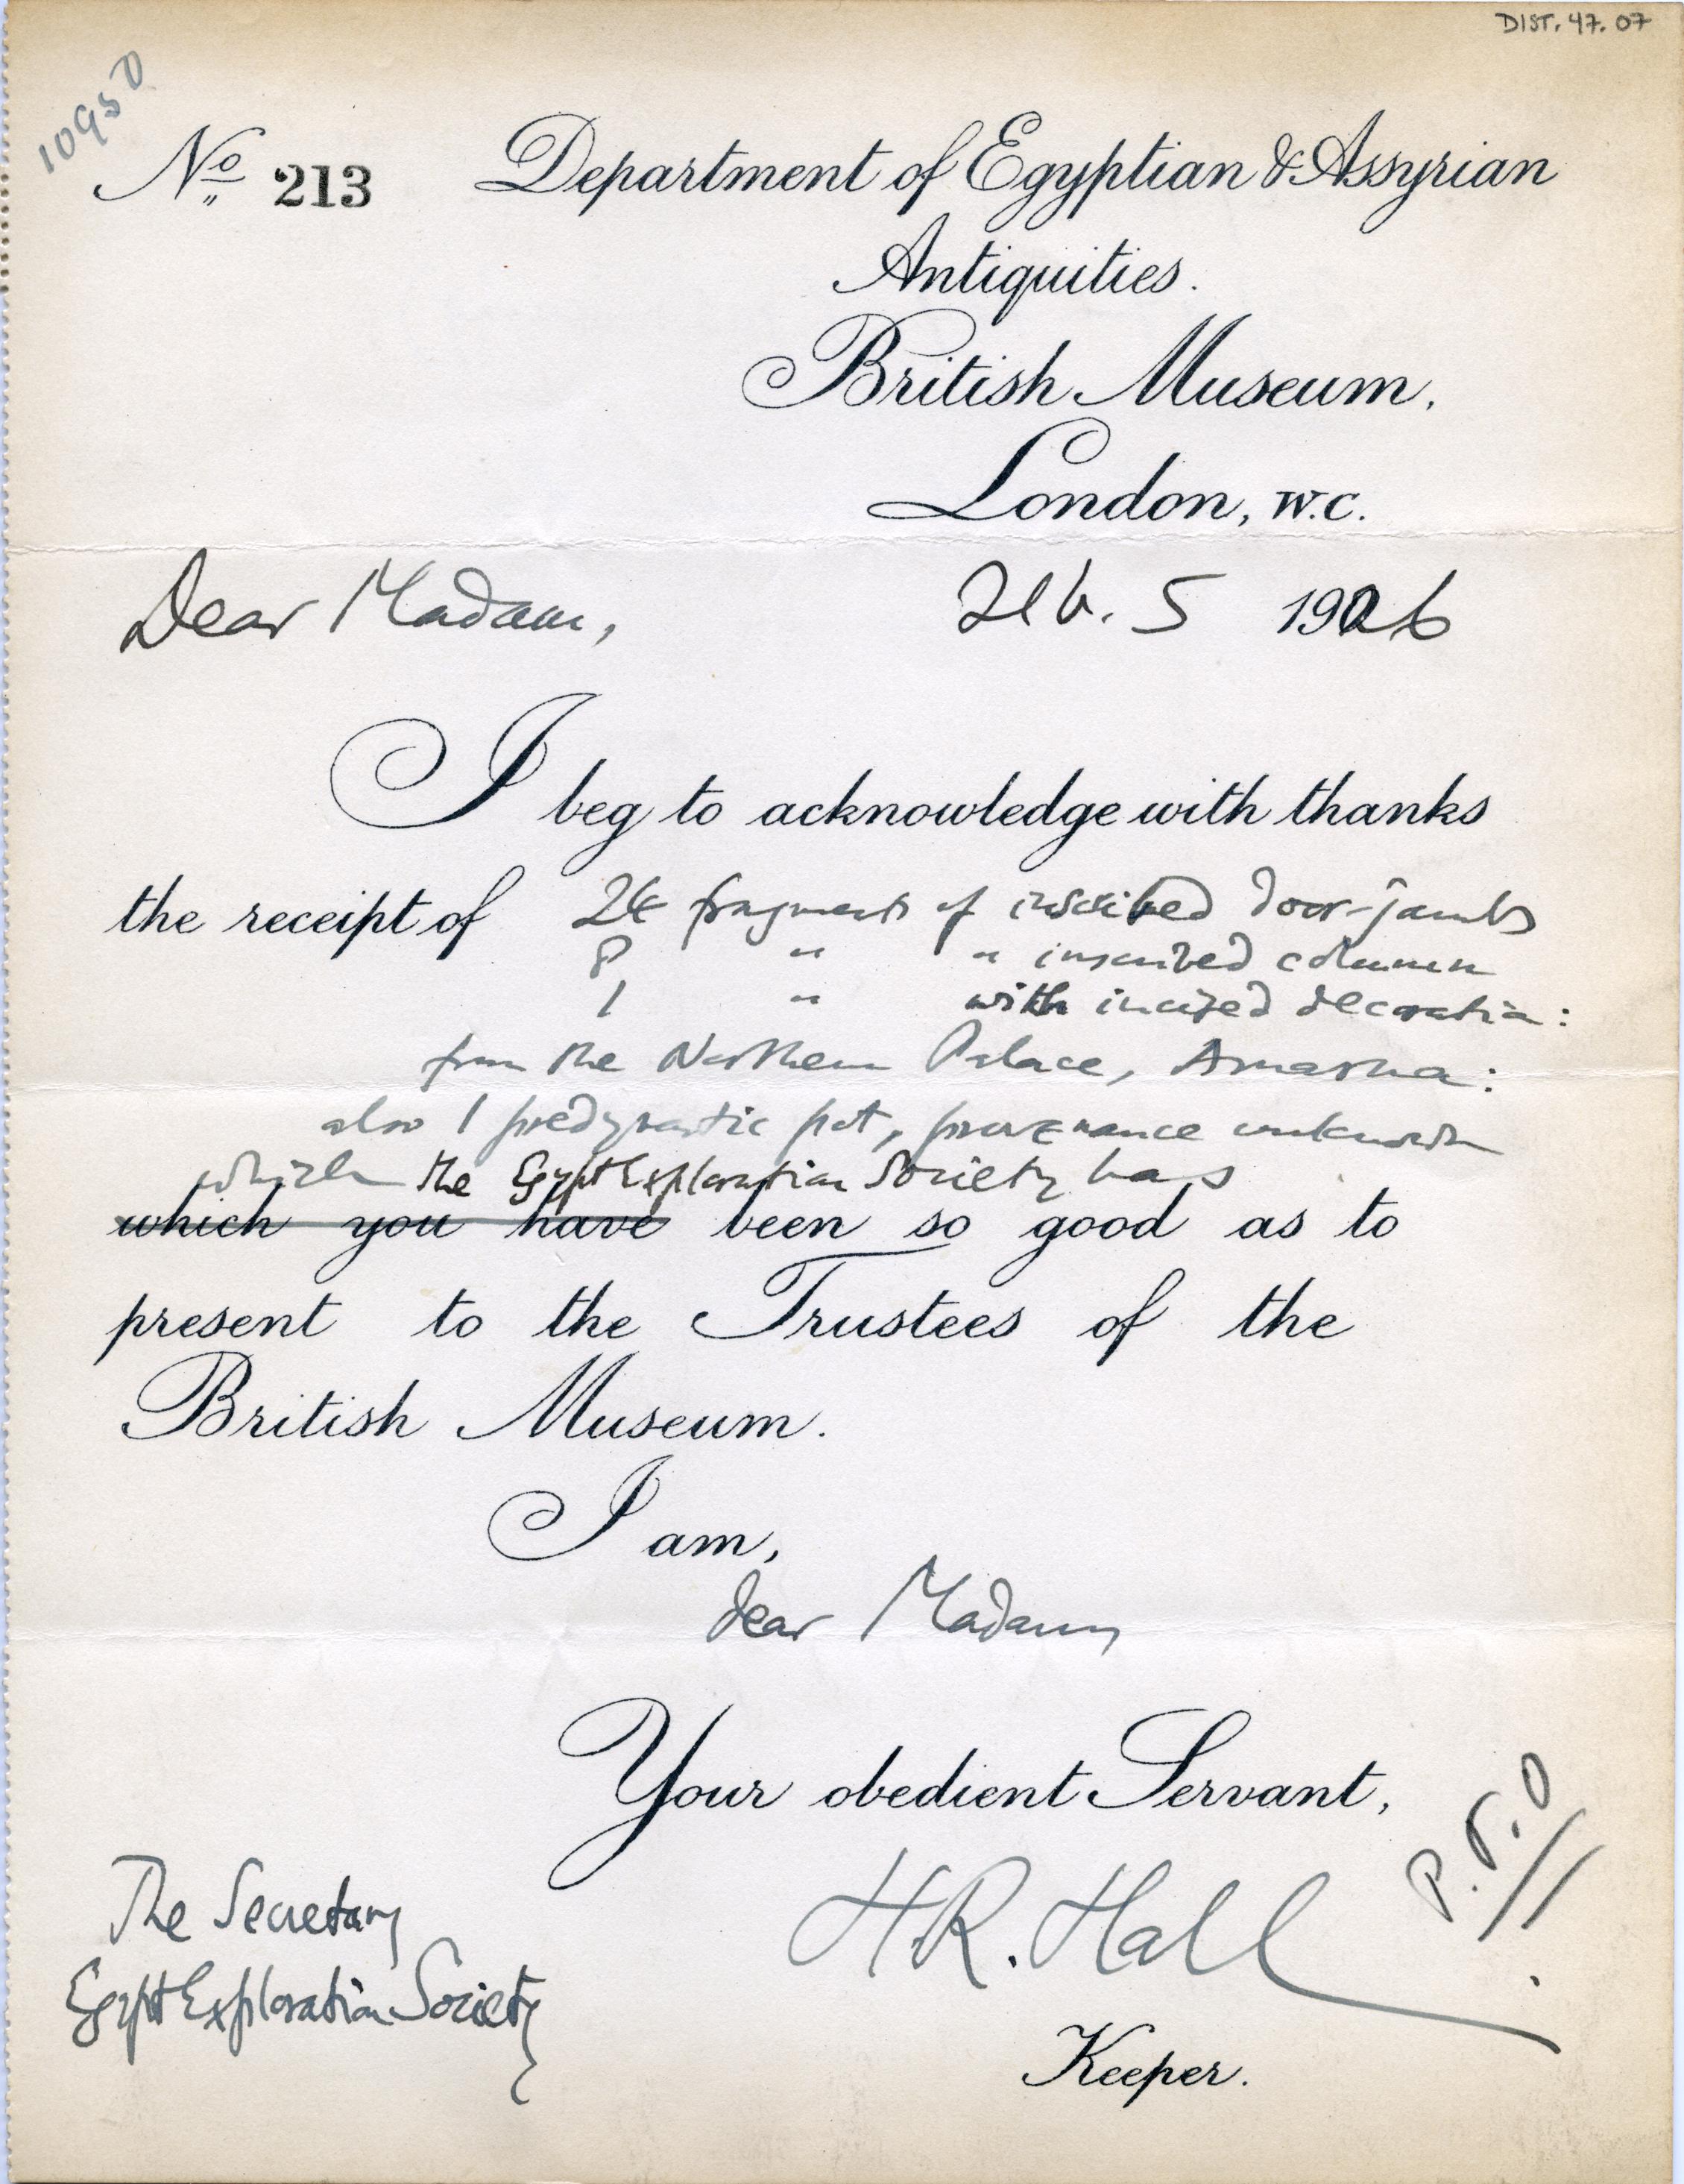 DIST. 47. 07
10950
No. 213 Department of Egyptian & Assyrian
Antiquities.
British Museum,
London, W.C.
Dear Madam, Feb. 5 1926
I beg to acknowledge with thanks
the receipt of fragments of inscribed door-jambs
8 " " inscribed column
1 " with incised decoration:
from the Northern Palace, Amarna:
also 1 predynastic pot, provenance unknown
which the Egypt Exploration Society has
which you have been so good as to
present to the Trustees of the
British Museum.
I am,
dear Madam
Your obedient Servant,
P.T.O
H.R. Hall
The Secretary
Egypt Exploration Society
Keeper.